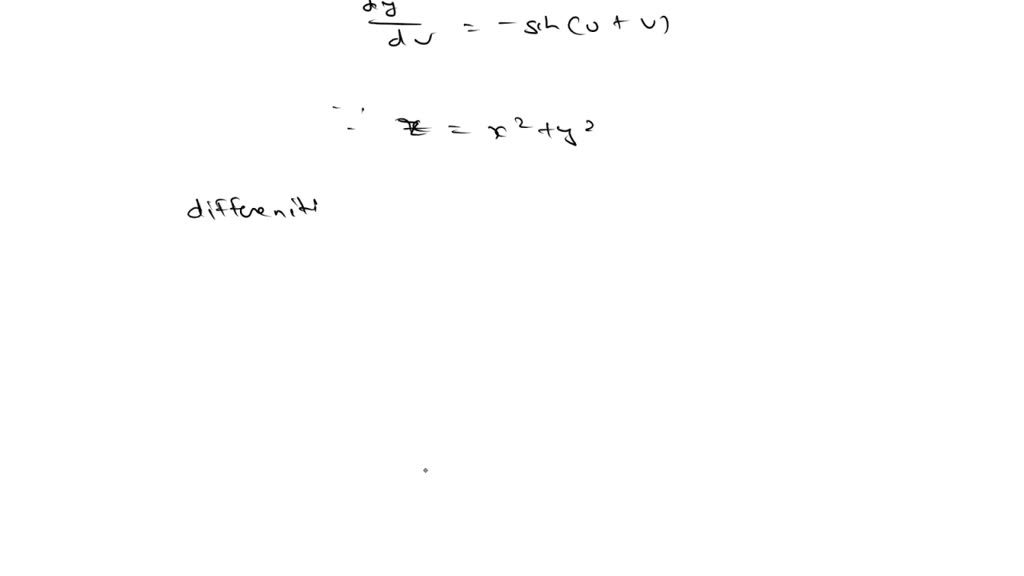 dy
dv = - sin(u + v)
∵ z = x² + y²
differeniti